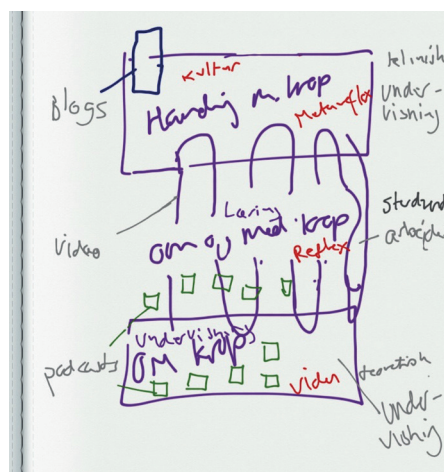 Blogs
Kultur
Handling m. krop
Metarefleks
teknisk
under-
visning
Video
Læring
om og med krop
Reflex
podcasts
undervisning
OM krop
viden
teoretisk
under-
visning